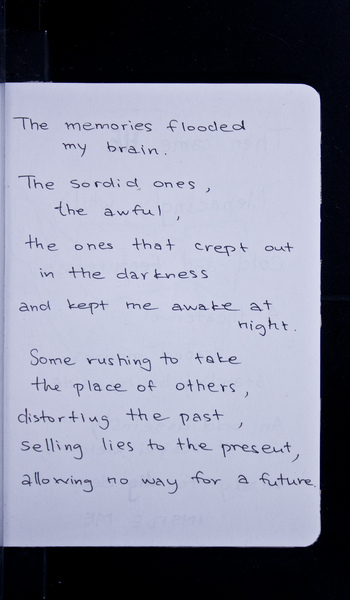 The memories flooded
my brain.
The sordid ones,
the awful,
the ones that crept out
in the darkness
and kept me awake at
night.
Some rushing to take
the place of others,
distorting the past,
selling lies to the present,
allowing no way for a future.